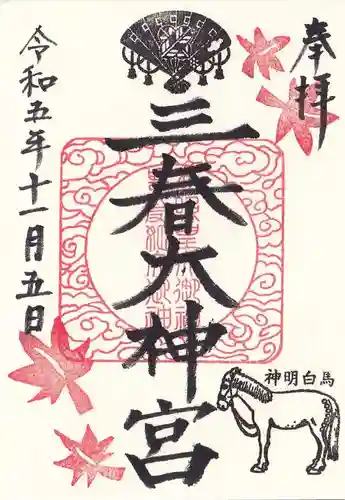 奉拝
三春大神宮
令和五年十一月五日
神明白馬